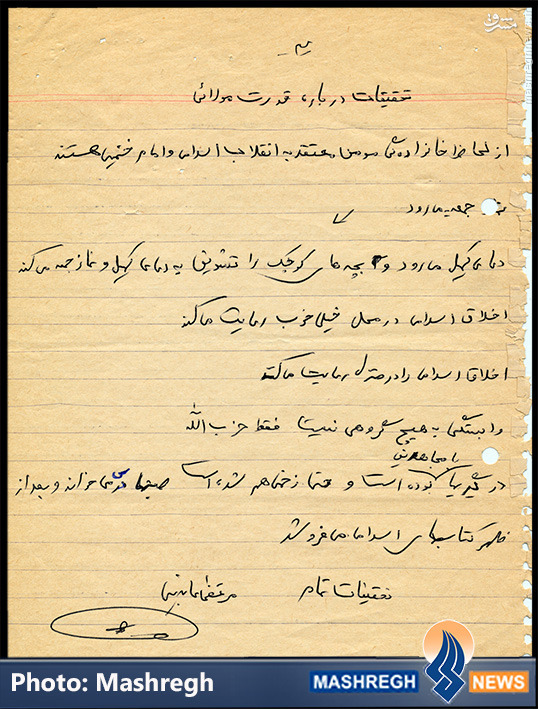 مشرق
تحقیقات درباره قدرت مولائی
از لحاظ خانوادگی مومن معتقد به انقلاب اسلامی و امام خمینی هستند
جمعه میرود
دعای کمیل میرود و بچه های کوچک را تشویق به دعای کمیل و نماز جمعه میکند
اخلاق اسلامی در محل خیلی خوب رعایت میکند
اخلاق اسلامی را در منزل رعایت میکند
وابستگی به هیچ گروهی نیست فقط حزب الله
با مجاهدین
درگیر بوده است و حتما زخمی هم شده است صبحها درس میخواند و بعد از
ظهر کتابهای اسلامی میفروشد
تحقیقات تمام
Photo: Mashregh
MASHREGH NEWS